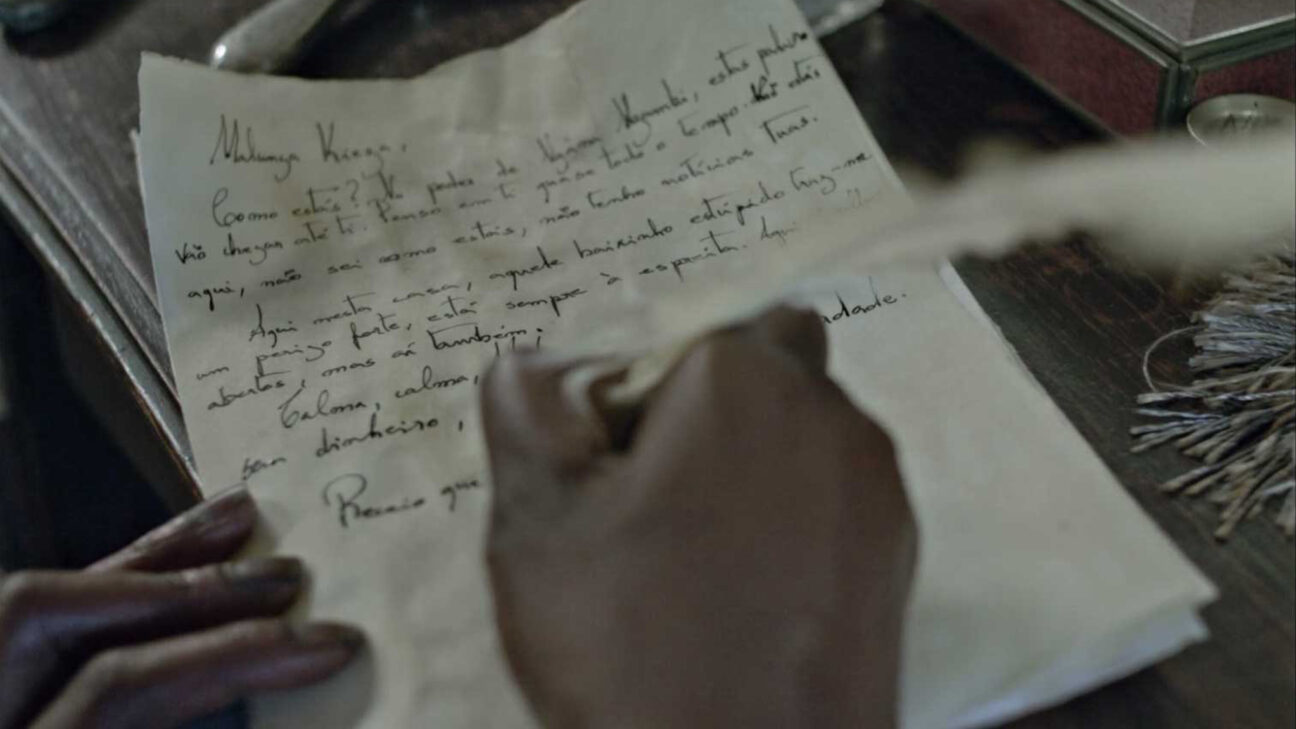 Malunga Kieza,
Como estás? No poder de Ngana Nzambi, estas palavras
vão chegar até ti. Penso em ti quase todo o tempo. Vai
aqui, não sei como estás, não tenho notícias Tuas.
Aqui nesta casa, aquele baixinho estúpido traz-me
um perigo forte, está sempre à espreita. Aqui
abertos, mas aí também.
Calma, calma, dade.
sem dinheiro,
Receio que